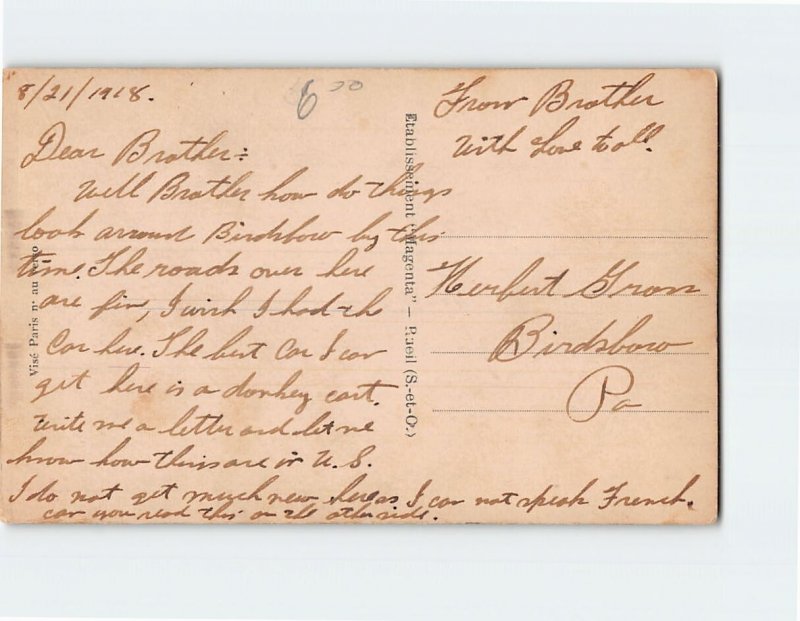 8/21/1918.
6 00
Dear Brother:
Well Brother how do things
look around Birdsboro by this
time. The roads over here
are fin, I wish I had the
Car here. The best Car I can
get here is a donkey cart.
Write me a letter and let me
know how things are in U.S.
I do not get much new here as I can not speak French.
can you read this on the other side.
From Brother
With Love to all.
Herbert
Birdsboro
Pa
Etablissement "Magenta" — Rueil (S.-et-O.)
Visé Paris n° au verso